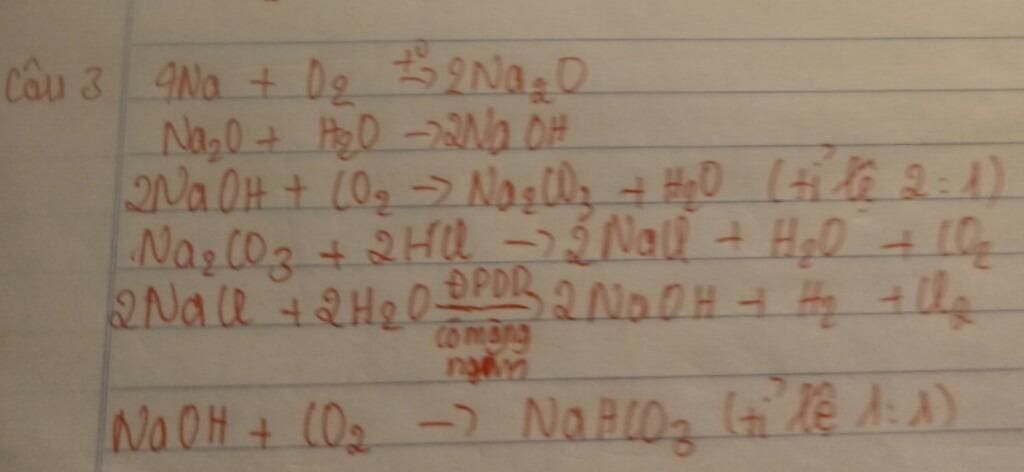 Câu 3 4Na + O₂ t⁰→ 2Na₂O
Na₂O + H₂O → 2NaOH
2NaOH + CO₂ → Na₂CO₃ + H₂O (tỉ lệ 2:1)
Na₂CO₃ + 2HCl → 2NaCl + H₂O + CO₂
2NaCl + 2H₂O ĐPDD→ 2NaOH + H₂ + Cl₂
có màng
ngăn
NaOH + CO₂ → NaHCO₃ (tỉ lệ 1:1)